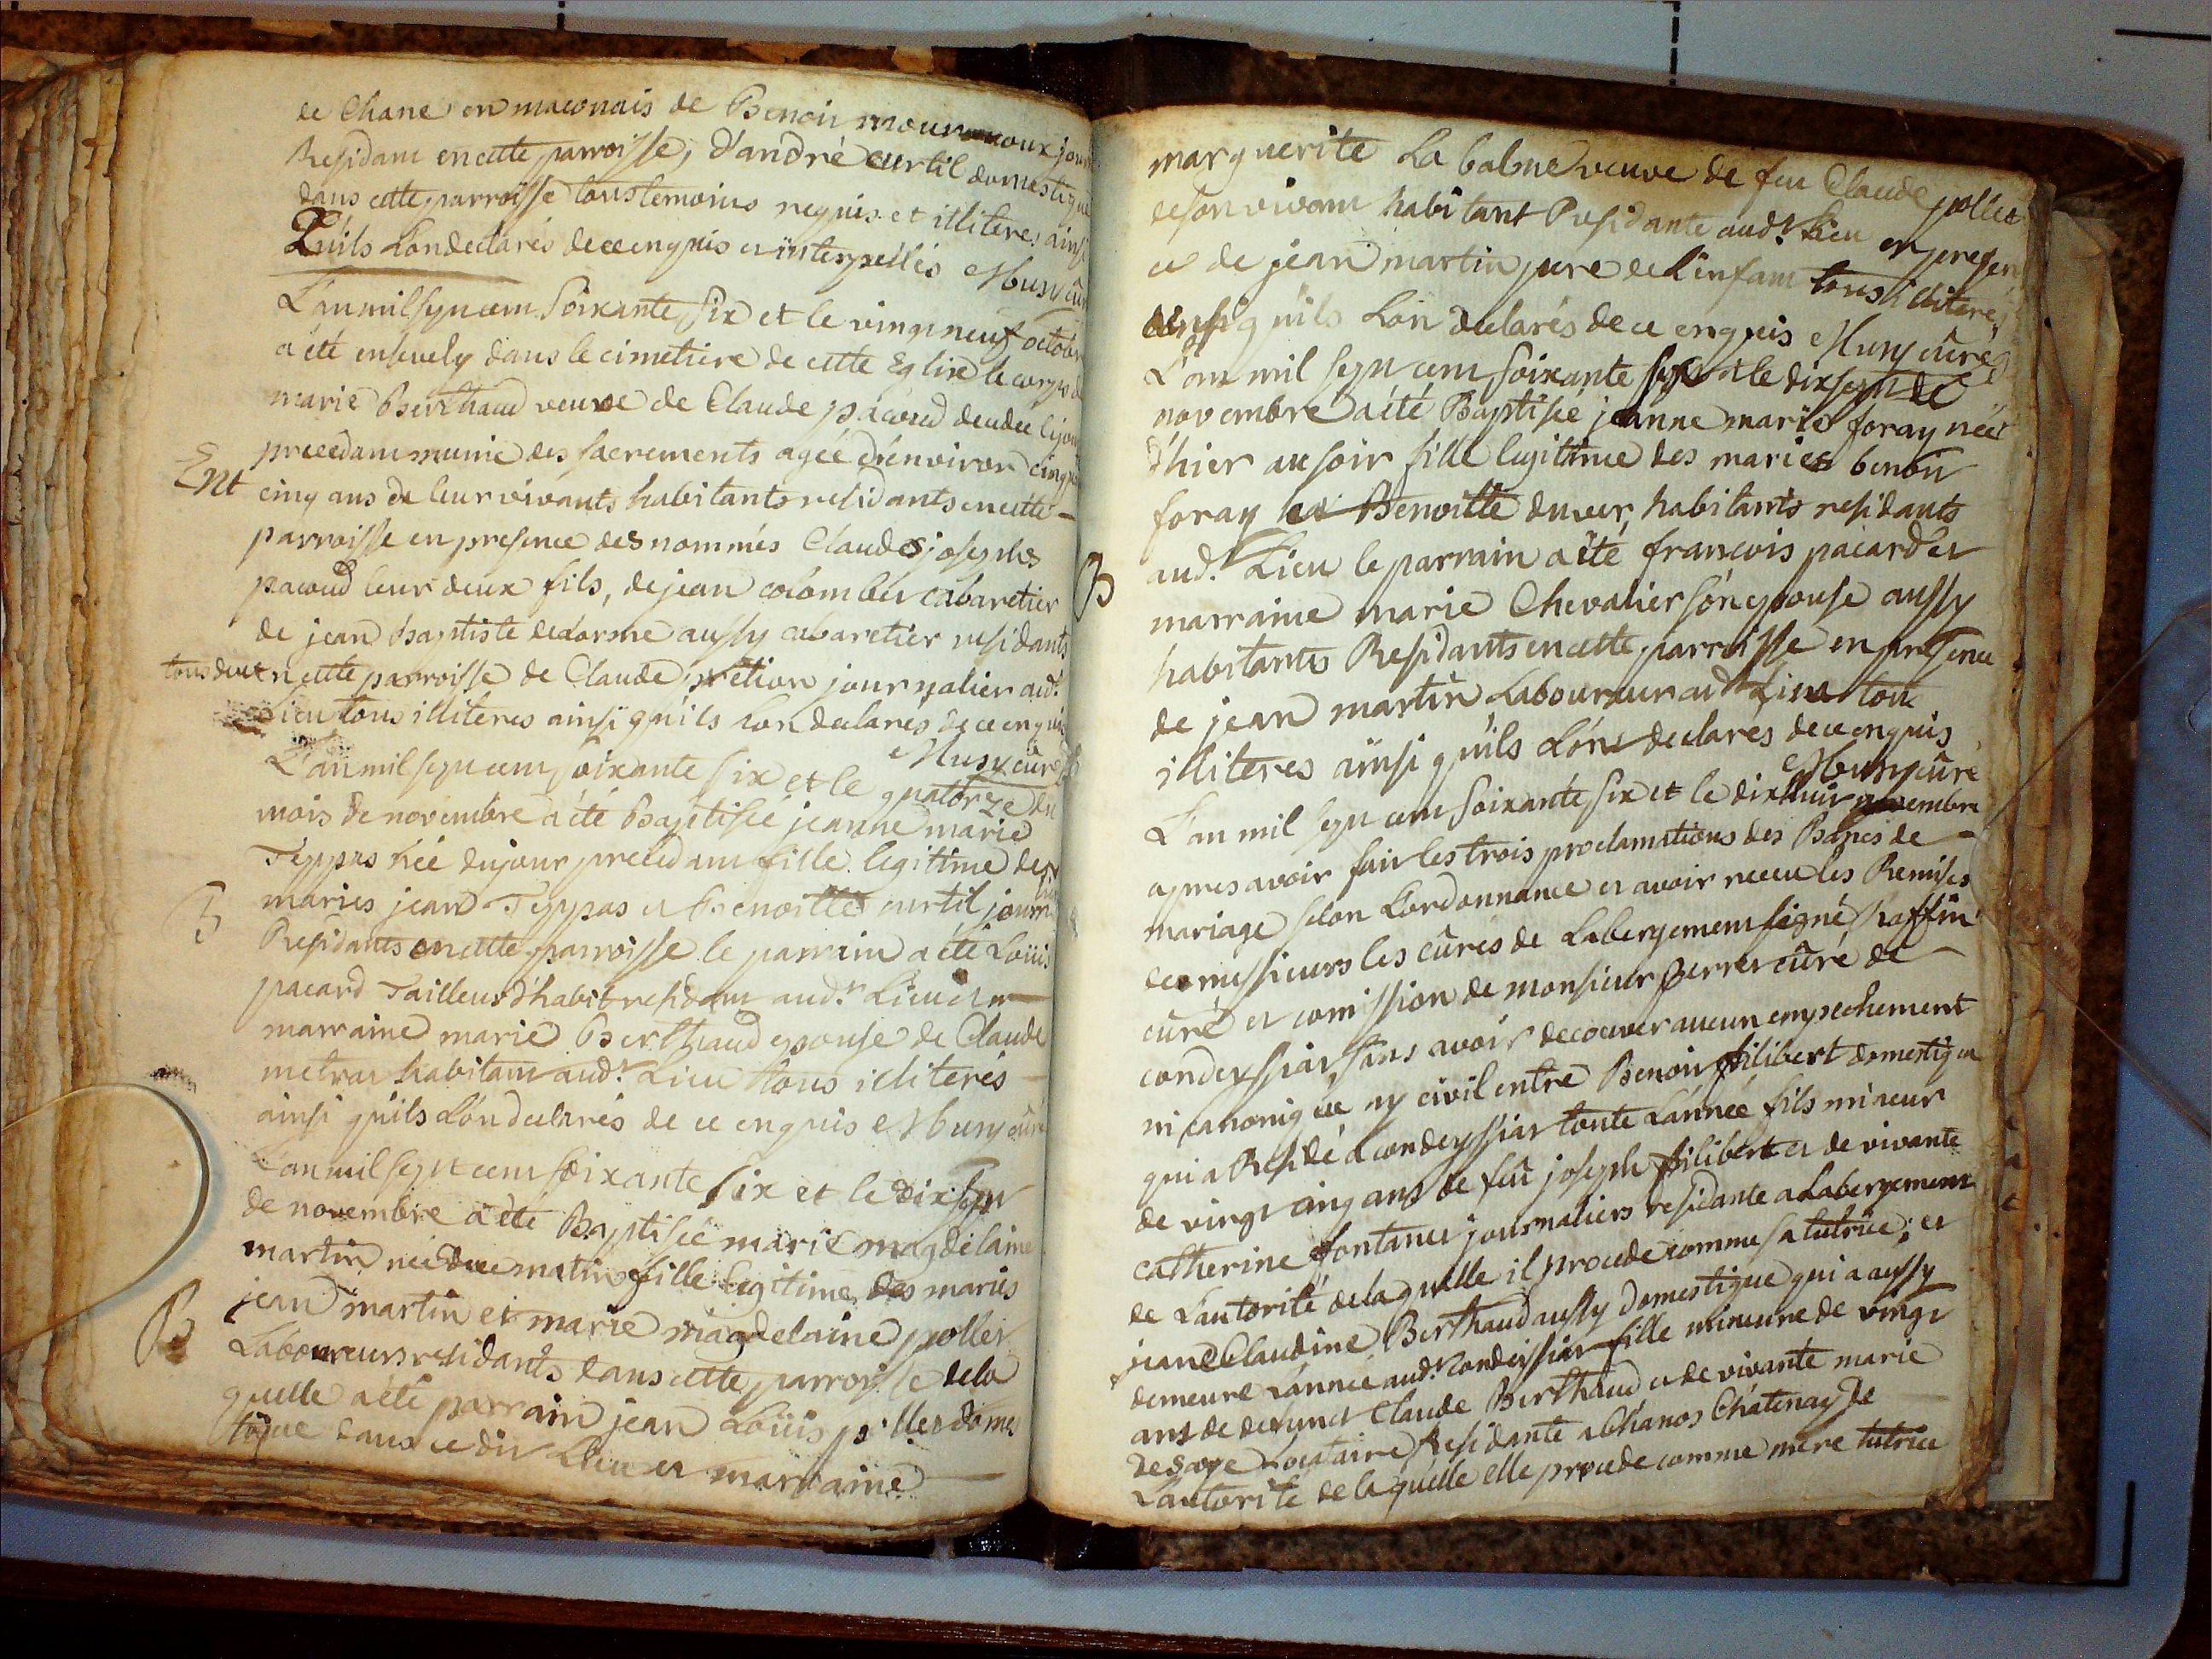 de Chane en maconais de Benoit
Residant en cette parroisse, d'andré curtil domestique
dans cette parroisse tous temoins requis et illiteres ainsi
Quils Lon declarés de ce enquis et interpellés Musy curé
L'an mil sept cent soixante six et le vingt neuf octobre
a été ensevely dans le cimetiere de cette Eglise le corps de
marie Berthaud veuve de Claude pacoud decedée le jour
precedant munie des sacrements agée d'environ cinquante
Ent
cinq ans de leur vivants habitants residants en cette
parroisse en presence des nommés Claude josephs
pacoud leur deux fils, de jean colombet cabaretier
de jean baptiste delorme aussy cabaretier residants
tous deux en cette parroisse de Claude pretion journalier aud.t
Lieu tous illiteres ainsi qu'ils Lon declarés de ce enquis
Musy curé
L'an mil sept cent soixante six et le quatorze du
mois de novembre a été Baptisée jeanne marie
Teppas née du jour precedant fille legitime des
B
maries jean Teppas et Benoitte curtil journ.
Residants en cette parroisse le parrain a été Loüis
pacard Tailleur d'habit residant aud.t Lieu et
marraine marie Berthaud epouse de Claude
metrat habitant aud.t Lieu tous illiterés
ainsi quils Lon declarés de ce enquis Musy curé
L'an mil sept cent soixante six et le dix sept
de novembre a été Baptisée marie magdelaine
martin née de ce matin fille legitime des maries
B
jean martin et marie magdelaine pollet
Laboureurs residants dans cette parroisse de la
quelle a été parrain jean Loüis pollet domes
tique dans ce dit Lieu et marraine
marguerite La balme veuve de feu Claude pollet
de son vivant habitant Residante aud.t Lieu en presen
ce de jean martin pere de L'enfant tous illiterés
ainsi quils Lon declarés de ce enquis Musy curé
L'an mil sept cent soixante sept et le dix sept de
novembre a été Baptisée jeanne marie foray née
d'hier au soir fille legitime des maries benoit
foray et Benoitte duver habitants residants
B
aud.t Lieu le parrain a été francois pacard et
marraine marie Chevalier son epouse aussy
habitants Residants en cette parroisse en presence
de jean martin Laboureur aud.t Lieu tous
illiteres ainsi quils L'ont declarés de ce enquis
Musy curé
L'an mil sept cent soixante six et le dixhuit novembre
apres avoir fait les trois proclamations des Bancs de
mariage selon Lordonnance et avoir receu les Remises
de messieurs les cures de Labergement signé
curé et comission de monsieur perret curé de
condeyssiat sans avoir decouvert aucun empechement
ni canonique ny civil entre Benoit filibert domestique
qui a Residé a condeyssiat toute L'année fils mineur
de vingt cinq ans de feu joseph filibert et de vivante
catherine fontanet journaliers residante a Labergement
de L'autorité de laquelle il procede comme sa tutrice; et
jeane Claudine Berthaud aussy domestique qui a aussy
demeuré L'année aud.t condeyssiat fille mineure de vingt
ans de defunct Claude Berthaud et de vivante marie
desaye Locataire Residante a Chanos Chatenay de
L'autorité de laquelle elle procede comme mere tutrice